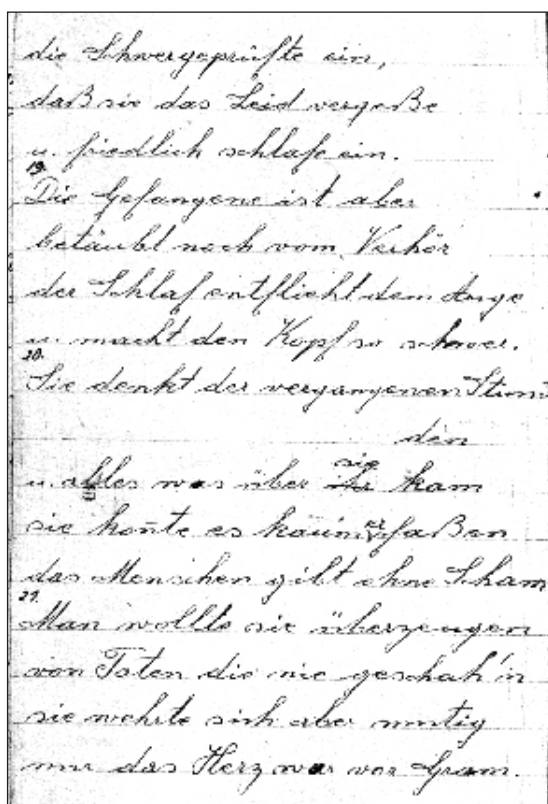 die Schwergeprüfte ein,
daß sie das Leid vergeße
u. friedlich schlafe ein.
19.
Die Gefangene ist aber
betäubt noch vom Verhör
der Schlaf entflieht dem Auge
u. macht den Kopf so schwer.
20.
Sie denkt der vergangenen Stun
den
u. alles was über sie kam
sie konnte es kaum erfaßen
das Menschen gibt ohne Scham
21.
Man wollte sie überzeugen
von Taten die nie geschah'n
sie wehrte sich aber mutig
nur das Herz war vor Gram.